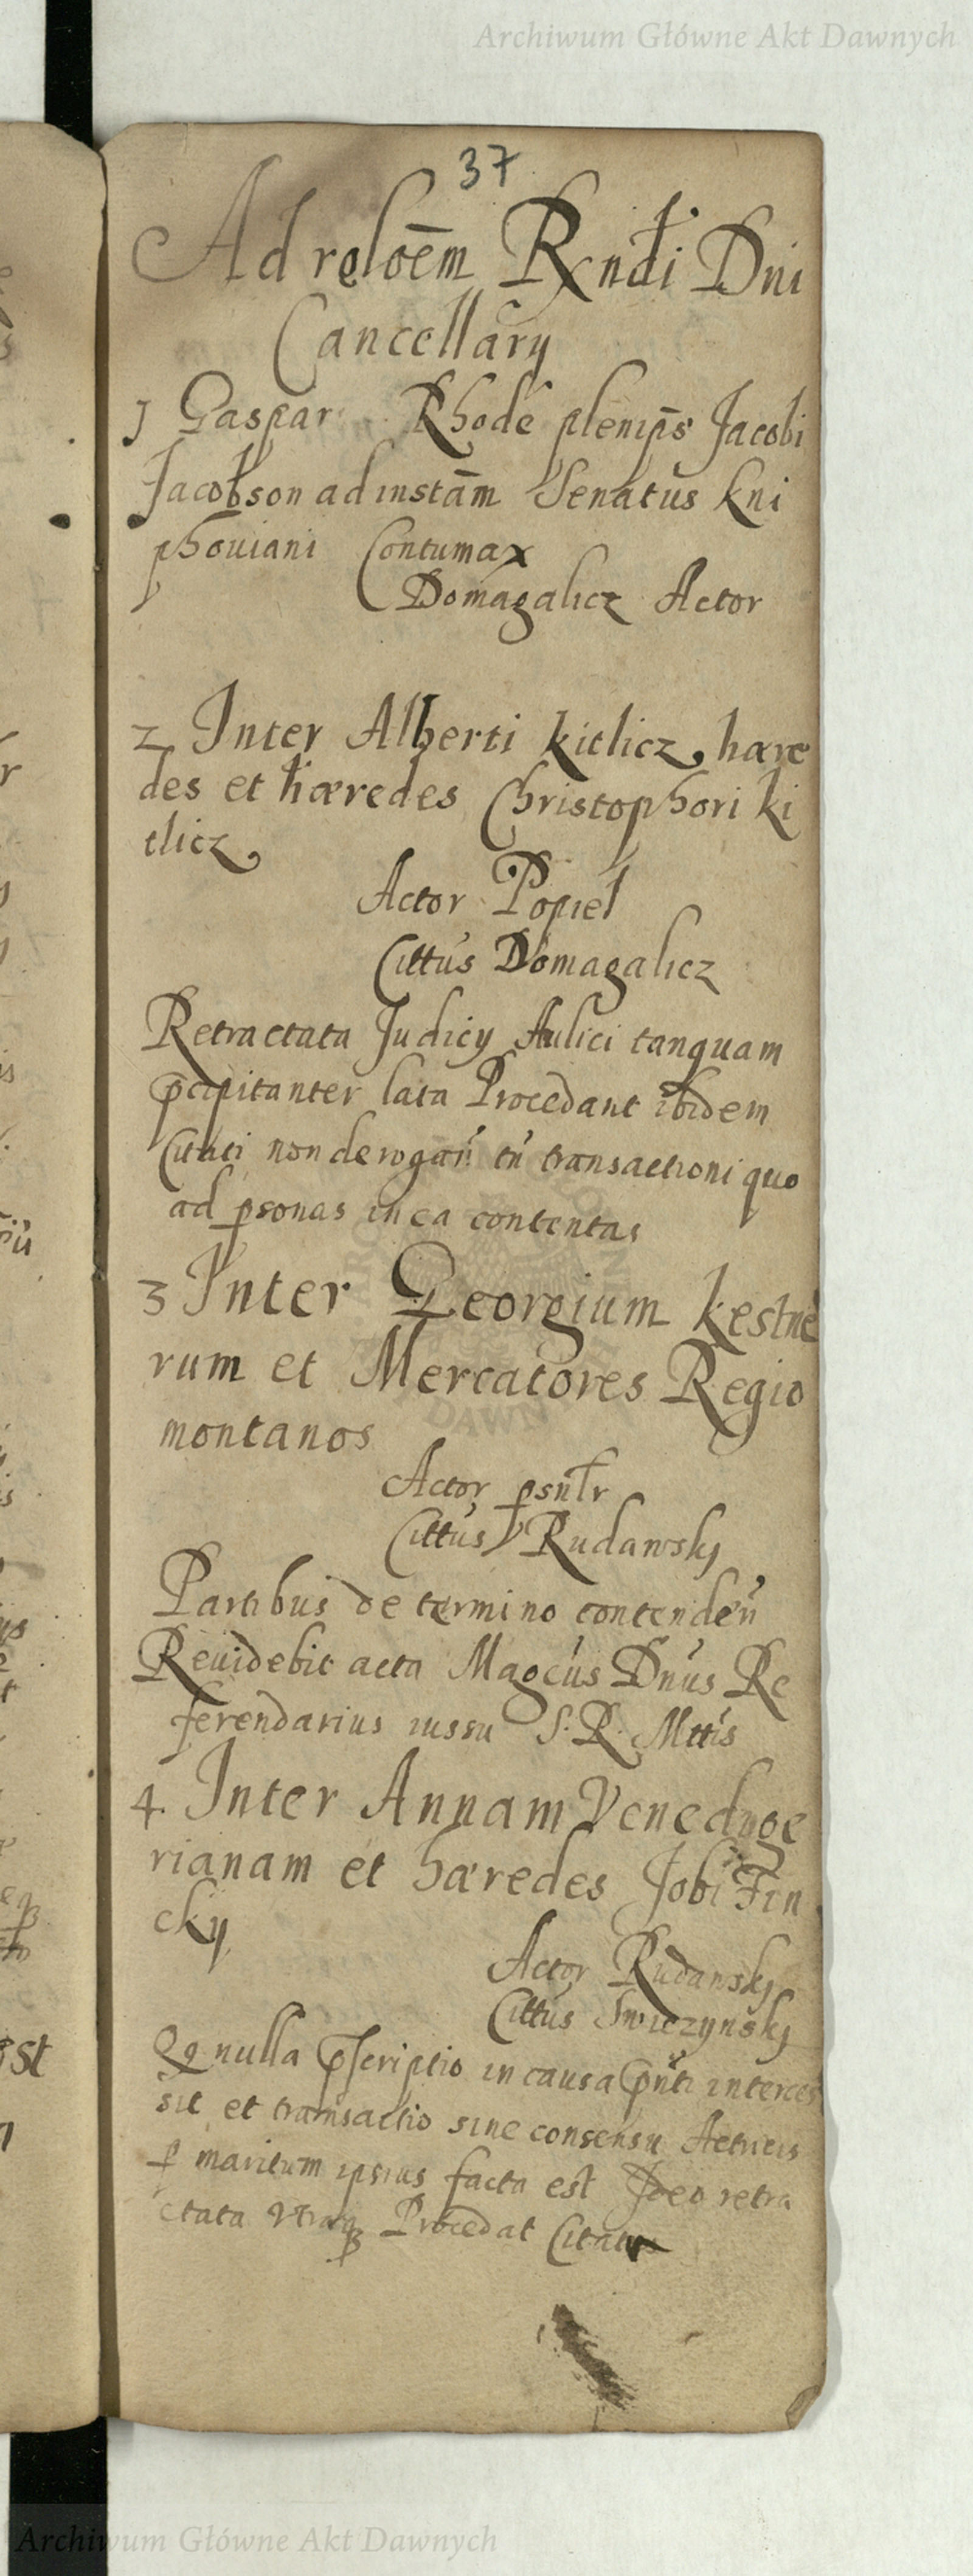 Archiwum Główne Akt Dawnych
37
Ad reloēm Rxndi Dni
Cancellary
1 Gaspar Rhode plenip̄s Jacobi
Jacobson ad instām Senatus Kni
phouiani Contumax
Domagalicz Actor
2 Inter Alberti Kitlicz hære
des et hæredes Christophori Ki
tlicz
Actor Popiel
Cittus Domagalicz
Retractata Judicy Aulici tanquam
p̄cipitanter lata Procedant ibidem
Citati non derogań tń transactioni quo
ad psonas in ea contentas
3 Inter Georgium Kestne
rum et Mercatores Regio
montanos
Actor psnlr
Cittus Rudawskj
Partibus de termino contendeń
Reuidebit acta Magcus Dnus Re
ferendarius iussu S. R. Mttis
4. Inter Annam Venedyge
rianam et hæredes Jobi Fin
cky
Actor Rudawskj
Cittus Swiezynskj
Qq nulla p̄scriptio in causa p̄nti interces
sit et transactio sine consensu Actricis
p maritum ipsius facta est Ideo retra
ctata vtraq Procedat Citatus
Archiwum Główne Akt Dawnych